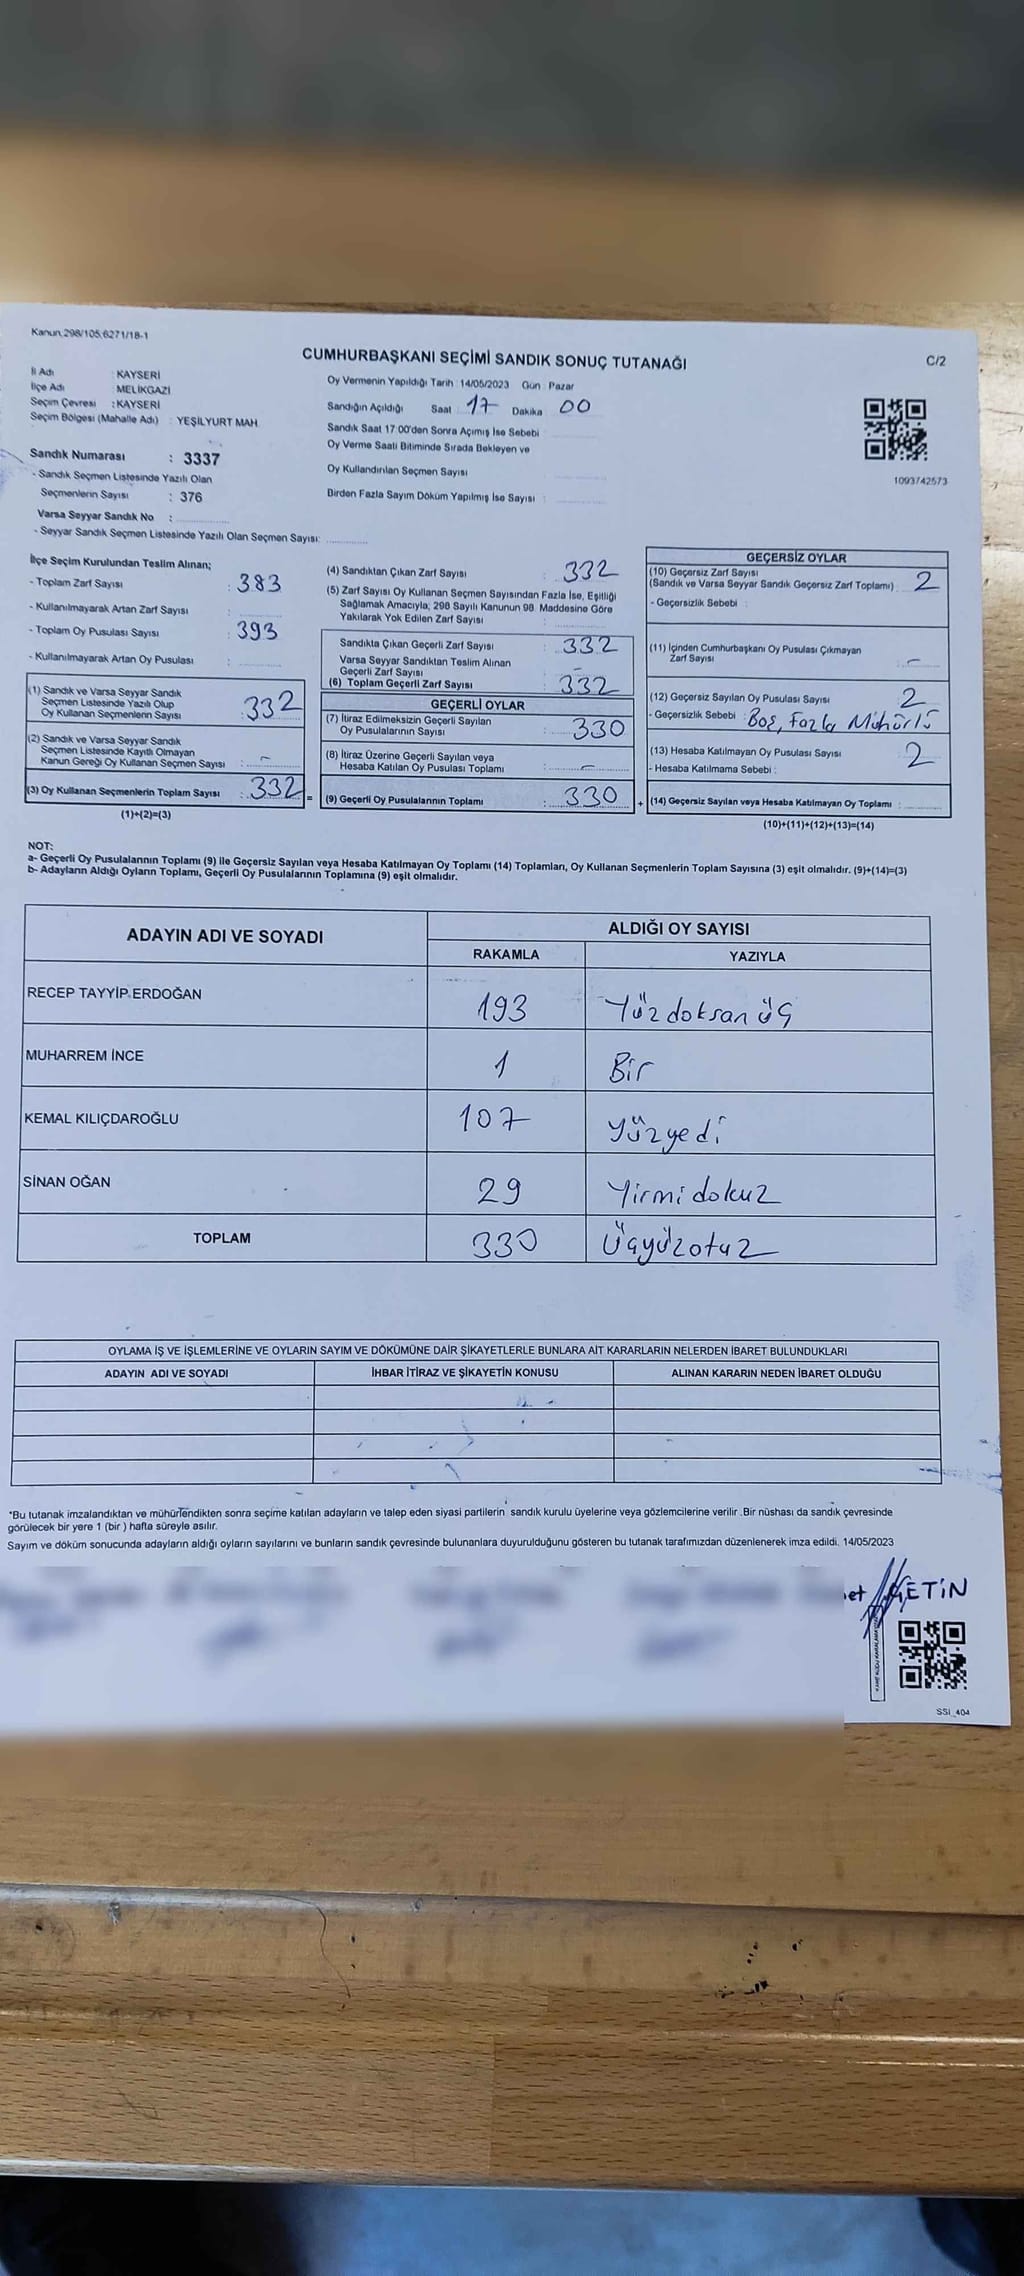 Kanun,298/105,6271/18-1
CUMHURBAŞKANI SEÇİMİ SANDIK SONUÇ TUTANAĞI
C/2
İl Adı : KAYSERİ
İlçe Adı : MELİKGAZİ
Seçim Çevresi : KAYSERİ
Seçim Bölgesi (Mahalle Adı) : YEŞİLYURT MAH.
Sandık Numarası : 3337
- Sandık Seçmen Listesinde Yazılı Olan
Seçmenlerin Sayısı : 376
Varsa Seyyar Sandık No :
- Seyyar Sandık Seçmen Listesinde Yazılı Olan Seçmen Sayısı:
Oy Vermenin Yapıldığı Tarih :14/05/2023 Gün : Pazar
Sandığın Açıldığı Saat 17 Dakika 00
Sandık Saat 17:00'den Sonra Açımış İse Sebebi :
Oy Verme Saati Bitiminde Sırada Bekleyen ve
Oy Kullandırılan Seçmen Sayısı
Birden Fazla Sayım Döküm Yapılmış İse Sayısı :
1093742573
İlçe Seçim Kurulundan Teslim Alınan;
- Toplam Zarf Sayısı : 383
- Kullanılmayarak Artan Zarf Sayısı :
- Toplam Oy Pusulası Sayısı : 393
- Kullanılmayarak Artan Oy Pusulası :
(1) Sandık ve Varsa Seyyar Sandık
Seçmen Listesinde Yazılı Olup
Oy Kullanan Seçmenlerin Sayısı : 332
(2) Sandık ve Varsa Seyyar Sandık
Seçmen Listesinde Kayıtlı Olmayan
Kanun Gereği Oy Kullanan Seçmen Sayısı : -
(3) Oy Kullanan Seçmenlerin Toplam Sayısı : 332 =
(1)+(2)=(3)
(4) Sandıktan Çıkan Zarf Sayısı : 332
(5) Zarf Sayısı Oy Kullanan Seçmen Sayısından Fazla İse, Eşitliği
Sağlamak Amacıyla; 298 Sayılı Kanunun 98. Maddesine Göre
Yakılarak Yok Edilen Zarf Sayısı :
Sandıkta Çıkan Geçerli Zarf Sayısı : 332
Varsa Seyyar Sandıktan Teslim Alınan
Geçerli Zarf Sayısı : -
(6) Toplam Geçerli Zarf Sayısı : 332
GEÇERLİ OYLAR
(7) İtiraz Edilmeksizin Geçerli Sayılan
Oy Pusulalarının Sayısı : 330
(8) İtiraz Üzerine Geçerli Sayılan veya
Hesaba Katılan Oy Pusulası Toplamı : -
(9) Geçerli Oy Pusulalarının Toplamı : 330 +
GEÇERSİZ OYLAR
(10) Geçersiz Zarf Sayısı
(Sandık ve Varsa Seyyar Sandık Geçersiz Zarf Toplamı) : 2
- Geçersizlik Sebebi :
(11) İçinden Cumhurbaşkanı Oy Pusulası Çıkmayan
Zarf Sayısı : -
(12) Geçersiz Sayılan Oy Pusulası Sayısı 2
- Geçersizlik Sebebi : Boş, Fazla Mühürlü
(13) Hesaba Katılmayan Oy Pusulası Sayısı 2
- Hesaba Katılmama Sebebi :
(14) Geçersiz Sayılan veya Hesaba Katılmayan Oy Toplamı :
(10)+(11)+(12)+(13)=(14)
NOT:
a- Geçerli Oy Pusulalarının Toplamı (9) ile Geçersiz Sayılan veya Hesaba Katılmayan Oy Toplamı (14) Toplamları, Oy Kullanan Seçmenlerin Toplam Sayısına (3) eşit olmalıdır. (9)+(14)=(3)
b- Adayların Aldığı Oyların Toplamı, Geçerli Oy Pusulalarının Toplamına (9) eşit olmalıdır.
ADAYIN ADI VE SOYADI
ALDIĞI OY SAYISI
RAKAMLA YAZIYLA
RECEP TAYYİP ERDOĞAN 193 Yüz doksan üç
MUHARREM İNCE 1 Bir
KEMAL KILIÇDAROĞLU 107 Yüzyedi
SİNAN OĞAN 29 Yirmi dokuz
TOPLAM 330 Üçyüzotuz
OYLAMA İŞ VE İŞLEMLERİNE VE OYLARIN SAYIM VE DÖKÜMÜNE DAİR ŞİKAYETLERLE BUNLARA AİT KARARLARIN NELERDEN İBARET BULUNDUKLARI
ADAYIN ADI VE SOYADI İHBAR İTİRAZ VE ŞİKAYETİN KONUSU ALINAN KARARIN NEDEN İBARET OLDUĞU
*Bu tutanak imzalandıktan ve mühürlendikten sonra seçime katılan adayların ve talep eden siyasi partilerin sandık kurulu üyelerine veya gözlemcilerine verilir .Bir nüshası da sandık çevresinde
görülecek bir yere 1 (bir ) hafta süreyle asılır.
Sayım ve döküm sonucunda adayların aldığı oyların sayılarını ve bunların sandık çevresinde bulunanlara duyurulduğunu gösteren bu tutanak tarafımızdan düzenlenerek imza edildi. 14/05/2023
et ÇETİN
SSİ_404